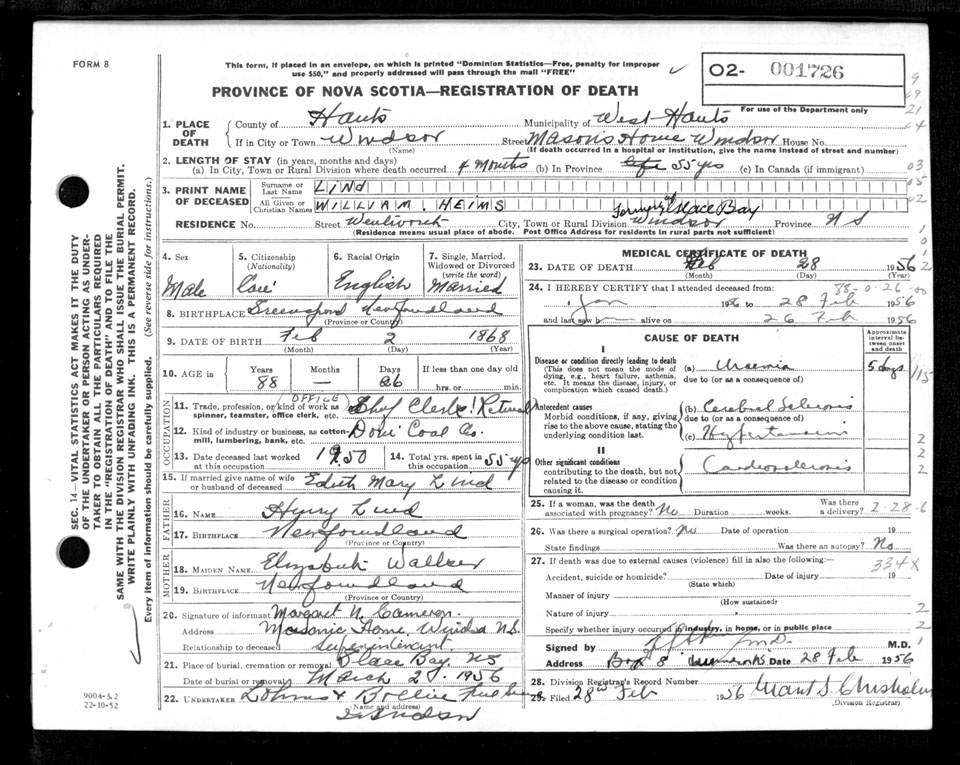 FORM 8
This form, if placed in an envelope, on which is printed "Dominion Statistics—Free, penalty for improper
use $50," and properly addressed will pass through the mail "FREE"
02- 001726
For use of the Department only
PROVINCE OF NOVA SCOTIA—REGISTRATION OF DEATH
1. PLACE OF DEATH
County of Hants Municipality of West Hants
If in City or Town Windsor Street Masons Home Windsor House No.
(Name) (If death occurred in a hospital or institution, give the name instead of street and number)
2. LENGTH OF STAY (in years, months and days)
(a) In City, Town or Rural Division where death occurred 4 Months (b) In Province life 55 yrs (c) In Canada (if immigrant)
3. PRINT NAME OF DECEASED
Surname or Last Name LIND
All Given or Christian Names WILLIAM. HEIMS
formerly of Glace Bay
RESIDENCE No. Street Wentworth City, Town or Rural Division Windsor Province NS
(Residence means usual place of abode. Post Office Address for residents in rural parts not sufficient)
4. Sex
Male
5. Citizenship (Nationality)
6. Racial Origin
English
7. Single, Married, Widowed or Divorced (write the word)
Married
8. BIRTHPLACE Newfoundland
(Province or Country)
9. DATE OF BIRTH Feb 2 1868
(Month) (Day) (Year)
10. AGE in Years Months Days If less than one day old
88 — 26 hrs. or min.
OCCUPATION
11. Trade, profession, or kind of work as spinner, teamster, office clerk, etc. OFFICE Chief Clerk! Retired
12. Kind of industry or business, as cotton-mill, lumbering, bank, etc. Dom Coal Co.
13. Date deceased last worked at this occupation 1950
14. Total yrs. spent in this occupation 55 yrs
15. If married give name of wife or husband of deceased Edith Mary Lind
FATHER
16. NAME Henry Lind
17. BIRTHPLACE Newfoundland
(Province or Country)
MOTHER
18. MAIDEN NAME Elizabeth Walker
19. BIRTHPLACE Newfoundland
(Province or Country)
20. Signature of informant Margaret N. Cameron.
Address Masonic Home, Windsor N.S.
Relationship to deceased Superintendent
21. Place of burial, cremation or removal Glace Bay, NS
Date of burial or removal March 2nd, 1956
22. UNDERTAKER
(Name and address)
Windsor
MEDICAL CERTIFICATE OF DEATH
23. DATE OF DEATH Feb 28 1956
(Month) (Day)
24. I HEREBY CERTIFY that I attended deceased from:
88-0-26-00
Jan 1956 to 28 Feb 1956
and last saw h alive on 26 Feb 1956
CAUSE OF DEATH
Approximate interval between onset and death
I
Disease or condition directly leading to death
(This does not mean the mode of dying, e.g., heart failure, asthenia, etc. It means the disease, injury, or complication which caused death.)
(a) Uraemia 5 days
due to (or as a consequence of)
Antecedent causes
Morbid conditions, if any, giving rise to the above cause, stating the underlying condition last.
(b) Cerebral Sclerosis
due to (or as a consequence of)
(c) Hypertension
II
Other significant conditions
contributing to the death, but not related to the disease or condition causing it.
Cardiosclerosis
25. If a woman, was the death associated with pregnancy? No Duration weeks. Was there a delivery?
2-28-6
26. Was there a surgical operation? No Date of operation 19
State findings Was there an autopsy? No
27. If death was due to external causes (violence) fill in also the following:—
334X
Accident, suicide or homicide? Date of injury 19
(State which)
Manner of injury
(How sustained)
Nature of injury
Specify whether injury occurred in industry, in home, or in public place
Signed by M.D.
Address Box 8 Date 28 Feb 1956
28. Division Registrar's Record Number
29. Filed 28th Feb 1956 Grant S. Chisholm
(Division Registrar)
9004-3.2
22-10-52
SEC. 14—VITAL STATISTICS ACT MAKES IT THE DUTY
OF THE UNDERTAKER OR PERSON ACTING AS UNDERTAKER TO OBTAIN ALL THE PARTICULARS REQUIRED
IN THE "REGISTRATION OF DEATH" AND TO FILE THE
SAME WITH THE DIVISION REGISTRAR WHO SHALL ISSUE THE BURIAL PERMIT.
WRITE PLAINLY WITH UNFADING INK. THIS IS A PERMANENT RECORD.
Every item of information should be carefully supplied. (See reverse side for instructions.)